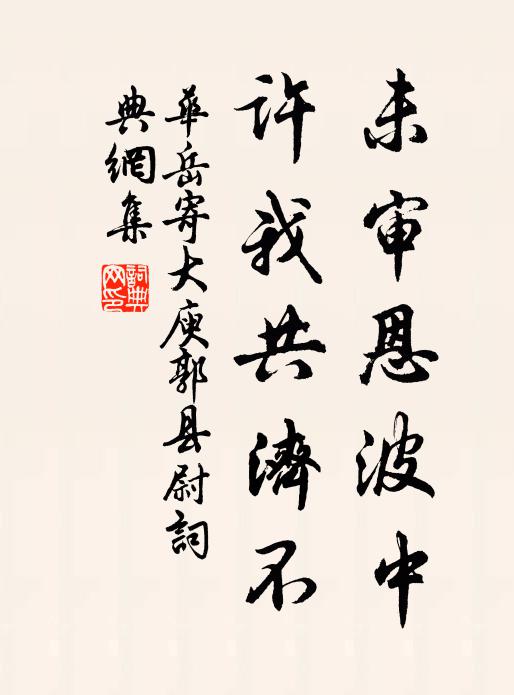 未审恩波中
许我共濟不
华岳寄大庾郭县尉詞
典網集
詞典
网印